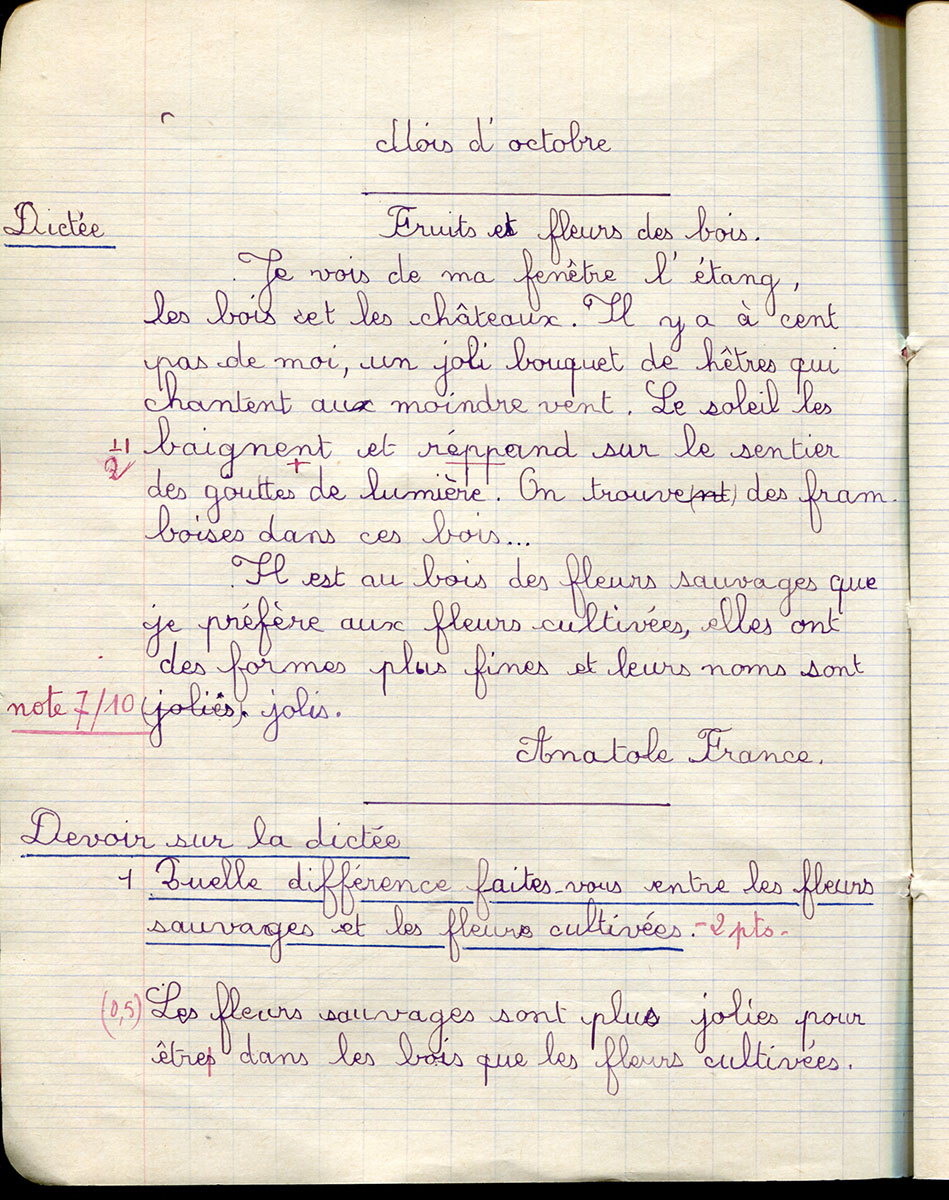 Mois d'octobre
Dictée Fruits et fleurs des bois.
Je vois de ma fenêtre l'étang,
les bois et les châteaux. Il y a à cent
pas de moi, un joli bouquet de hêtres qui
chantent aux moindre vent. Le soleil les
baignent et réppand sur le sentier
des gouttes de lumière. On trouve(nt) des fram-
boises dans ces bois...
Il est au bois des fleurs sauvages que
je préfère aux fleurs cultivées, elles ont
des formes plus fines et leurs noms sont
note 7/10 (jolies). jolis.
Anatole France.
Devoir sur la dictée
1 Quelle différence faites-vous entre les fleurs
sauvages et les fleurs cultivées. -2 pts-
(0,5) Les fleurs sauvages sont plus jolies pour
êtres dans les bois que les fleurs cultivées.